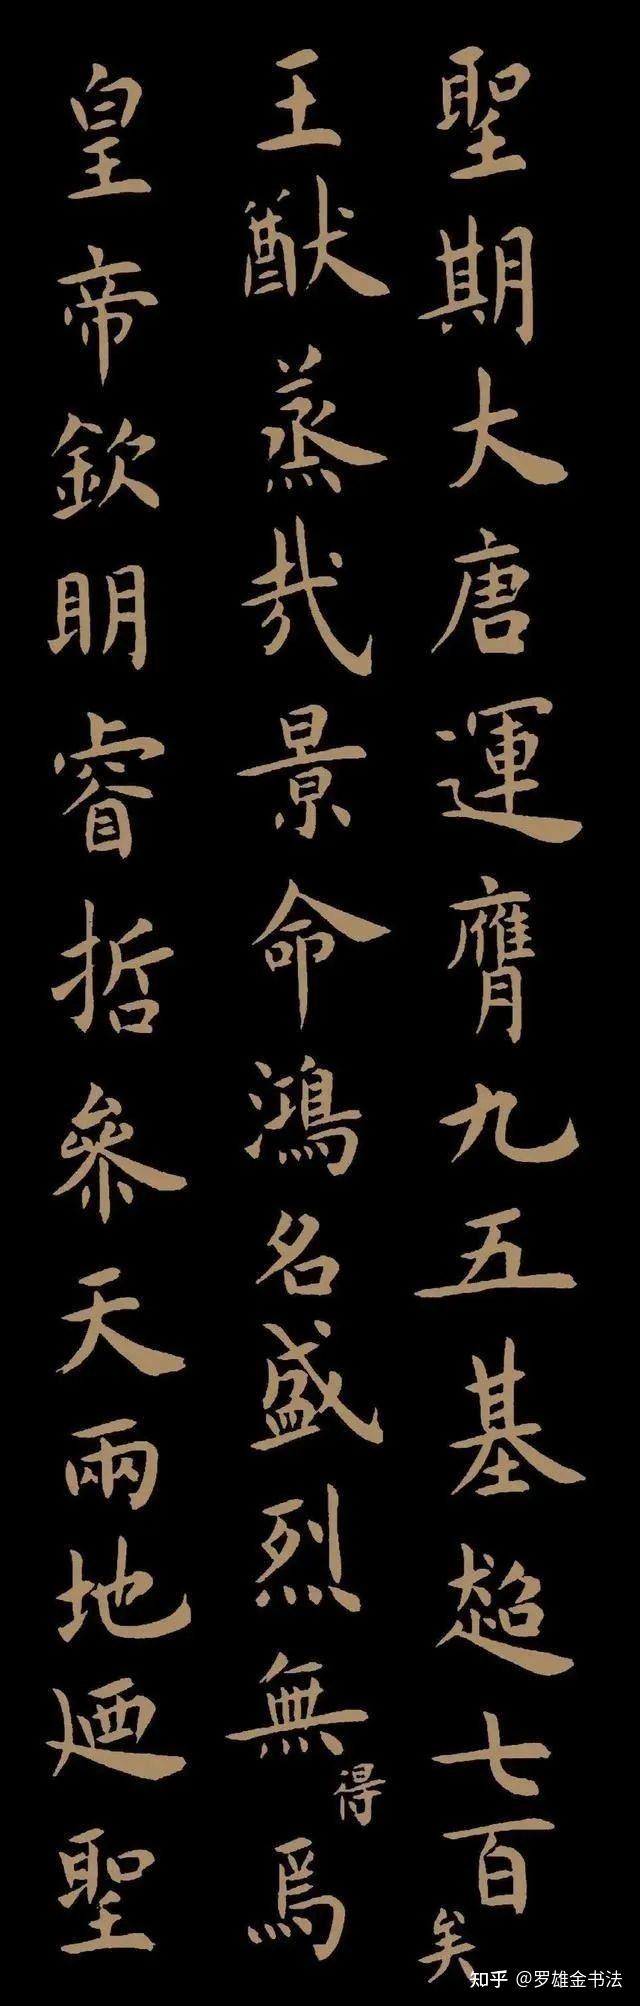 聖期大唐運膺九五基超七百矣
王猷蒸哉景命鴻名盛烈無得焉
皇帝欽明睿哲參天兩地廼聖
知乎 @罗雄金书法